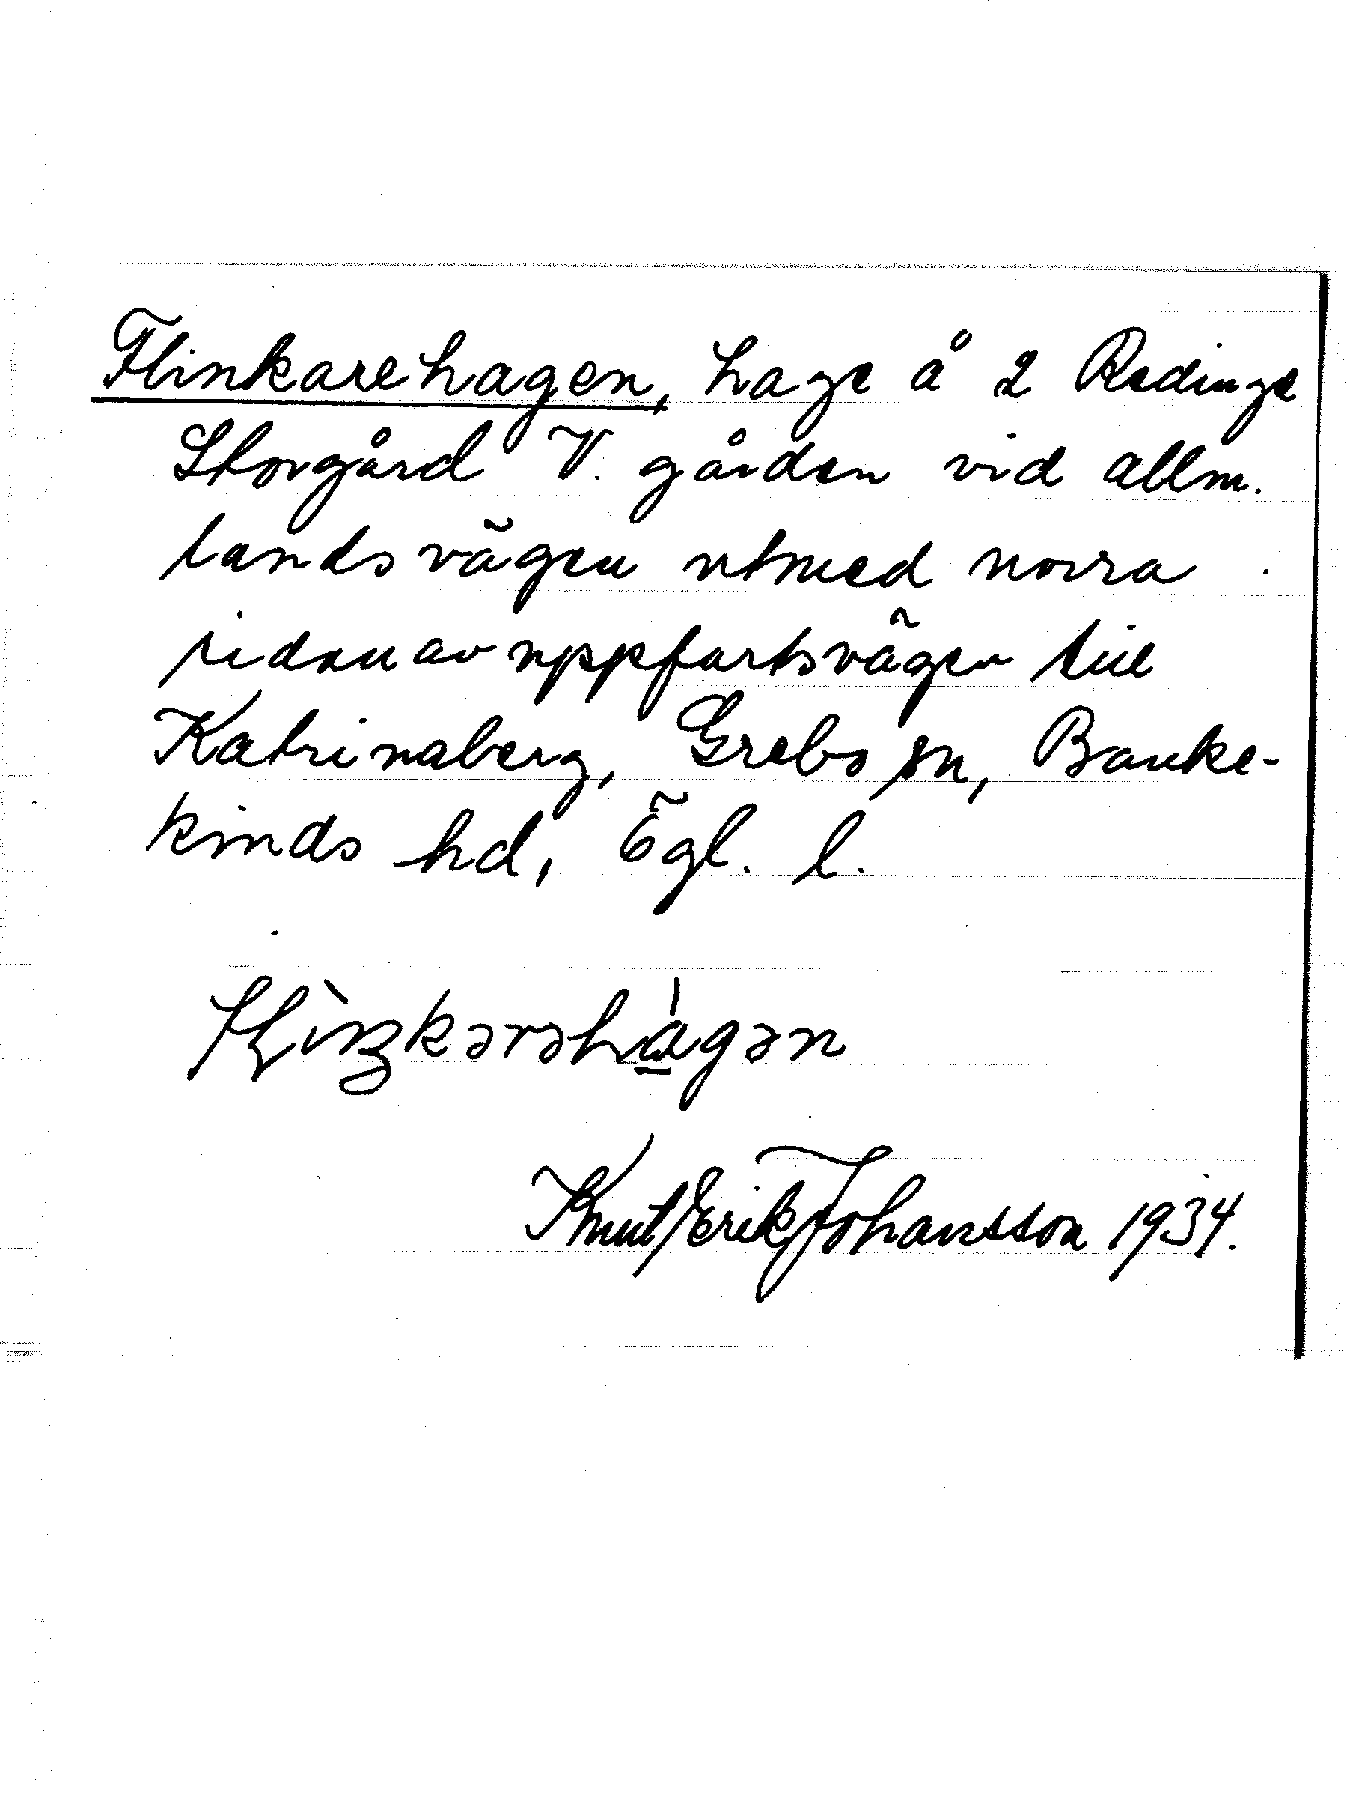 Flinkarehagen, hage å 2 Redinge
Storgård V. gården vid allm.
landsvägen utmed norra
sidan av uppfartsvägen till
Katrinaberg, Grebo sn, Banke-
kinds hd, Ögl. l.
Flìŋkərəhàgən
Knut/Erik/Johansson 1934.